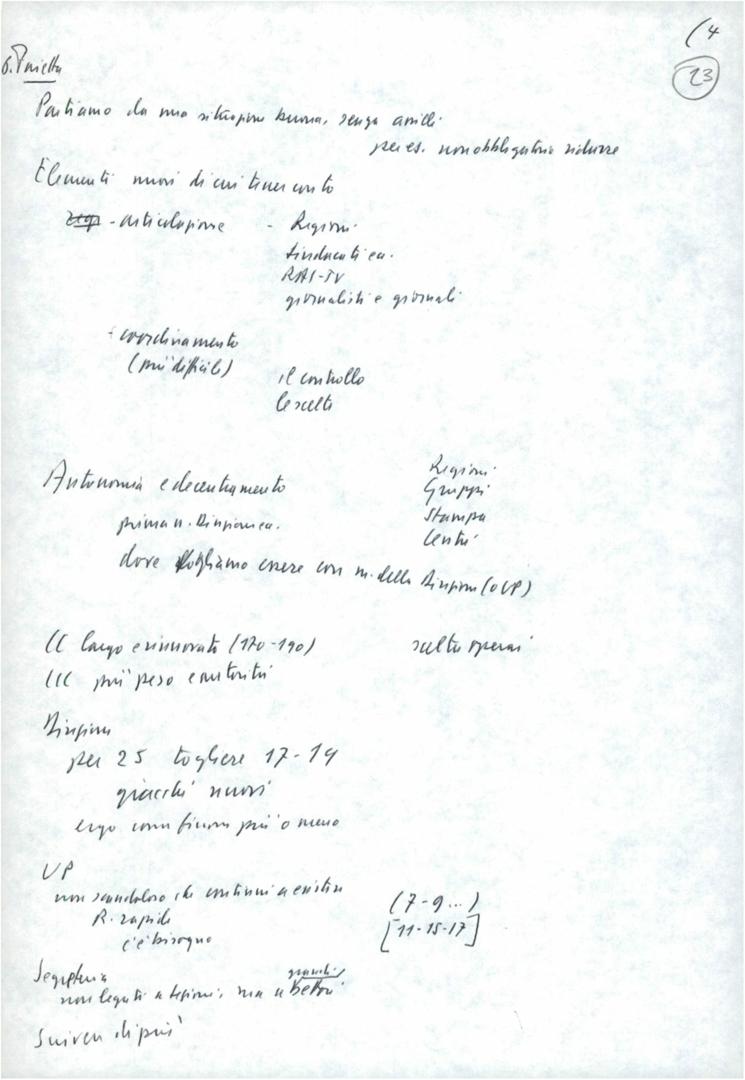 (4
23
G. Pajetta
Partiamo da una situazione buona, senza assilli
per es. non obbligatorio ridurre
Elementi nuovi di cui tener conto
- articolazione - Regioni
Sindacati ecc.
RAI-TV
giornalisti e giornali
- coordinamento
(più difficile)
il controllo
le scelte
Autonomia e decentramento
Regioni
Gruppi
Stampa
Centri
prima n. Direzione ecc.
dove vogliamo essere con m. della Direzione (o UP)
CC largo e rinnovato (170-190) scelta operai
CCC più peso e autorità
Direzione
per 25 togliere 17-19
giacché nuovi
ergo com'finora più o meno
UP
non scandaloso che continui a esistere
R. rapide
c'è bisogno
(7-9...)
[11-15-17]
Segreteria
non legati a sezioni, ma a grandi settori
Scrivere di più